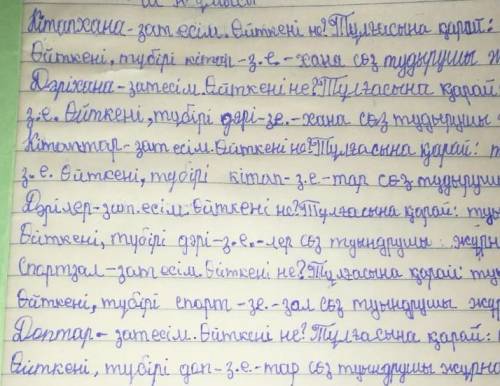 Кітапхана-зат есім. Өйткені не? Тұлғасына қарай:
Өйткені, түбірі кітап-з.е.-хана сөз тудырушы ж
Дәріхана-зат есім. Өйткені не? Тұлғасына қарай
з.е. Өйткені, түбірі дәрі-зе.-хана сөз тудырушы
Кітаптар-зат есім. Өйткені не? Тұлғасына қарай: т
з.е. Өйткені, түбірі кітап-з.е-тар сөз тудыруш
Дәрілер-зат.есім. Өйткені не? Тұлғасына қарай: туы
Өйткені, түбірі дәрі-з.е.-лер сөз туындрушы журн
Спортзал-зат есім. Өйткені не? Тұлғасына қарай: ту
Өйткені, түбірі спорт-зе.-зал сөз туындрушы жұр
Доптар-зат есім. Өйткені не? Тұлғасына қарай:
Өйткені, түбірі доп-з.е-тар сөз туындрушы журна